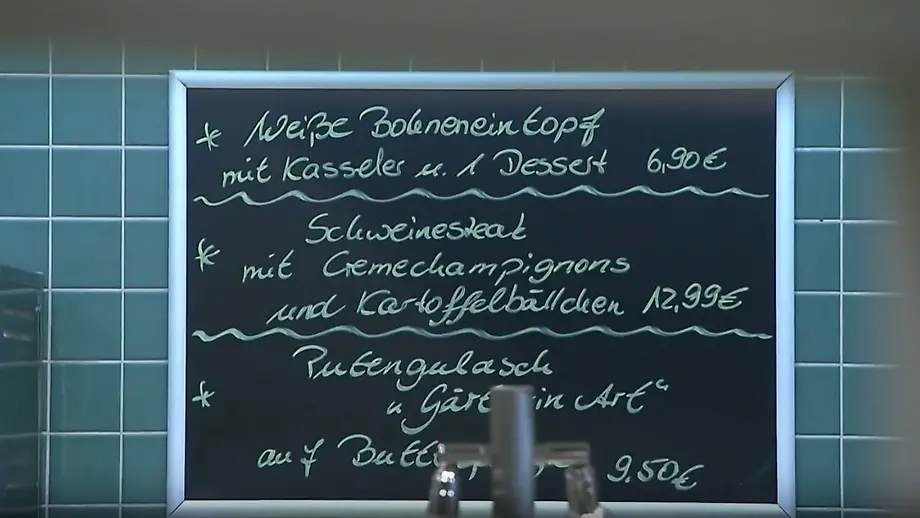 * Weiße Bohneneintopf
mit Kasseler u. 1 Dessert 6,90€
Schweinesteak
* mit Cremechampignons
und Kartoffelbällchen 12,99€
Putengulasch
* „Gärtnerin Art“
auf 9.50€